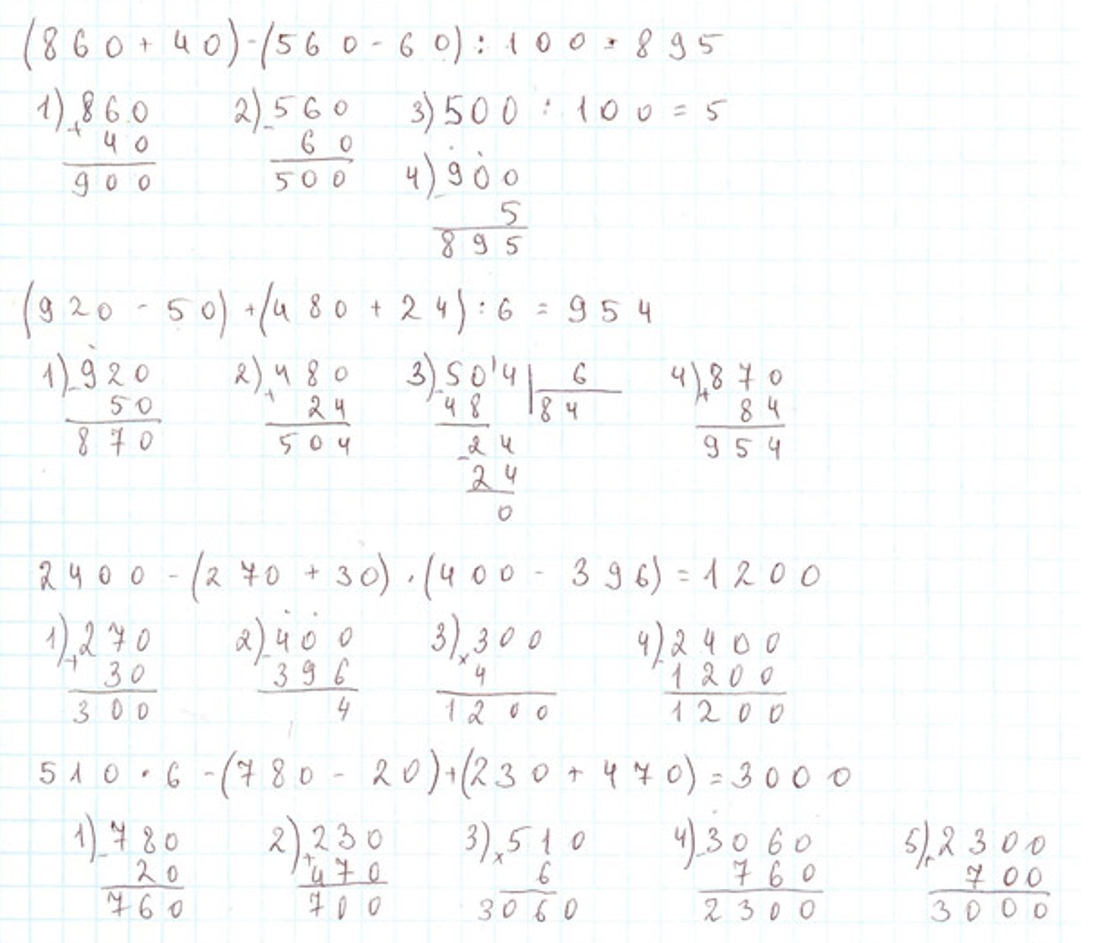 (860 + 40) - (560 - 60) : 100 = 895
1) 860 2) 560 3) 500 : 100 = 5
+ 40 - 60
900 500 4) 900
- 5
895
(920 - 50) + (480 + 24) : 6 = 954
1) 920 2) 480 3) 50'4 | 6 4) 870
- 50 + 24 - 48 | 84 + 84
870 504 - 24 954
24
0
2400 - (270 + 30) · (400 - 396) = 1200
1) 270 2) 400 3) 300 4) 2400
+ 30 - 396 × 4 - 1200
300 4 1200 1200
510 · 6 - (780 - 20) + (230 + 470) = 3000
1) 780 2) 230 3) 510 4) 3060 5) 2300
- 20 + 470 × 6 - 760 + 700
760 700 3060 2300 3000